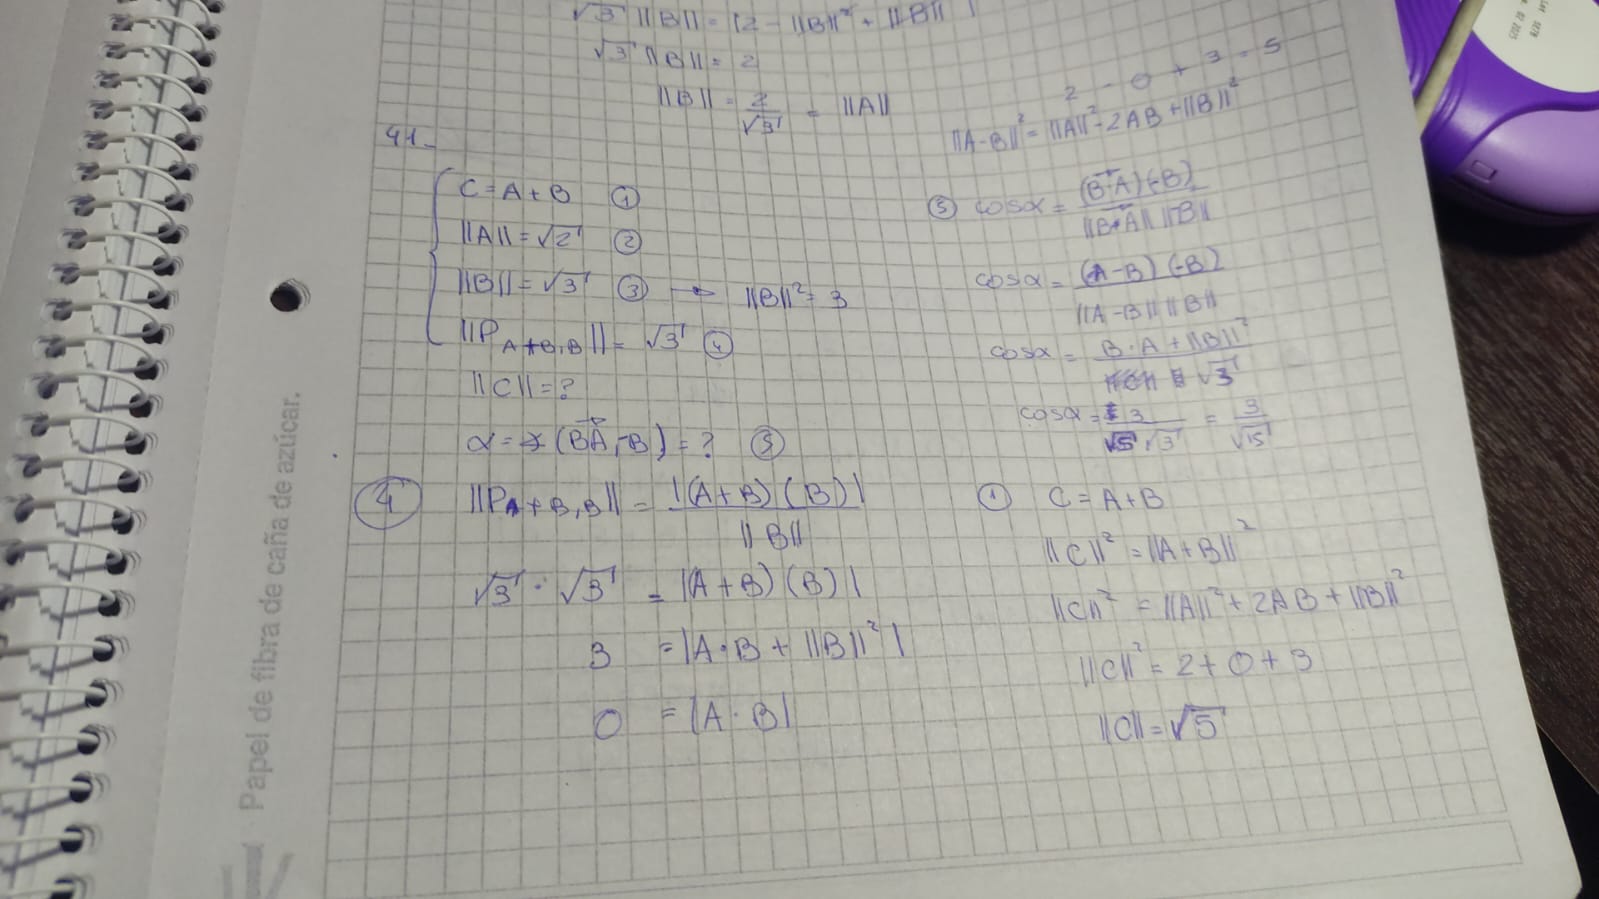 √3 ||B|| = |2 - ||B||² + ||B||
√3 ||B|| = 2
||B|| = 2/√3 = ||A||
2 - 0 + 3 = 5
||A-B||² = ||A||² - 2AB + ||B||²
41-
C = A + B ①
||A|| = √2 ②
||B|| = √3 ③ → ||B||² = 3
||P A+B,B|| = √3 ④
||C|| = ?
α = ∡ (BA, -B) = ? ⑤
④ ||P A+B,B|| = |(A+B)(B)| / ||B||
√3 · √3 = |(A+B)(B)|
3 = |A·B + ||B||²|
0 = |A·B|
⑤ cosα = (B·A)(-B) / ||B·A|| ||-B||
cosα = (A-B)(-B) / ||A-B|| ||B||
cosα = B·A + ||B||² / √3
cosα = 3 / √5 √3 = 3 / √15
① C = A + B
||C||² = ||A+B||²
||C||² = ||A||² + 2AB + ||B||²
||C||² = 2 + 0 + 3
||C|| = √5
Papel de fibra de caña de azúcar.